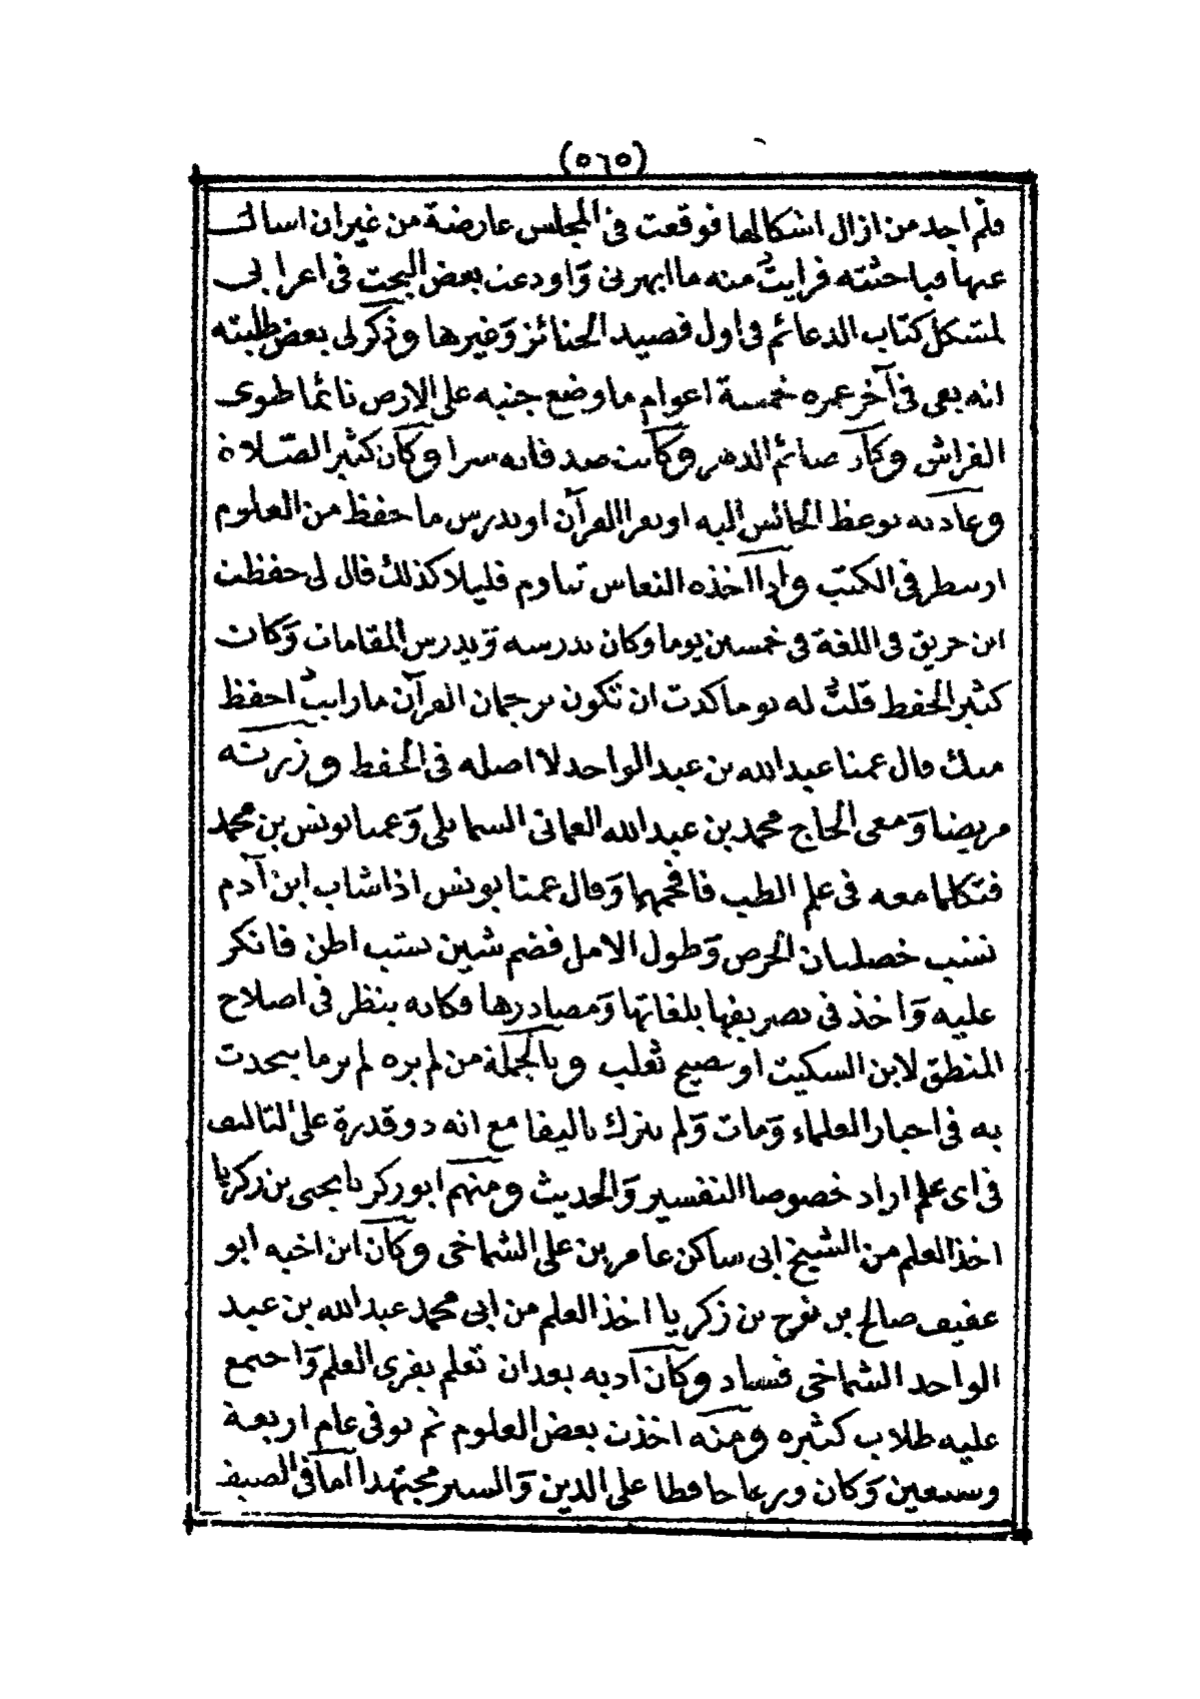 (٥٦٥)
فلم اجد من ازال اشكالها فوقعت فى المجلس عارضة من غيران اسالته
عنها فباحثته فرايت منه ما ابهرنى وَاودعت بعض البحث فى اعرابى
لمشكل كتاب الدعائم فى اول قصيد الجنائز وَغيرها وذكر لى بعض طلبته
انه بقى فى آخر عمره خمسة اعوام ما وضع جنبه على الارض نائما طوى
الفراش وكان صائم الدهر وكانت صدقاته سرا وكان كثير الصّلاة
وعادته يوعظ الجالس اليه او يقرا القرآن او يدرس ما حفظ من العلوم
او ينظر فى الكتب واذا اخذه النعاس تناوم قليلا كذلك قال لى حفظت
ابن حريق فى اللغة فى خمسين يوما وكان يدرسه وَيدرس المقامات وَكان
كثير الحفظ قلت له يوما كدت ان تكون ترجمان القرآن ما رايت احفظ
منك قال عمنا عبد الله بن عبد الواحد لا اصله فى الحفظ وزرته
مريضا وَمعى الحاج محمد بن عبد الله العمانى السمايلى وَعمنا يونس بن محمد
فتكلما معه فى علم الطب فافحمهما وَقال عمنا يونس اذا شاب ابن آدم
تشب خصلتان الحرص وَطول الامل فضم شين تشب اظن فانكر
عليه وَاخذ فى تصريفها بلغاتها وَمصادرها فكانه ينظر فى اصلاح
المنطق لابن السكيت او فصيح ثعلب وبالجملة من لم يره لم ير ما يتحدث
به فى اخبار العلماء وَمات وَلم يترك تاليفا مع انه ذو قدرة على التاليف
فى اى علم اراد خصوصا التفسير وَالحديث ومنهم ابو زكرياء يحيى بن زكريا
اخذ العلم من الشيخ ابى ساكن عامر بن على الشماخى وكان ابن اخيه ابو
عفيف صالح بن نوح بن زكريا اخذ العلم من ابى محمد عبد الله بن عبد
الواحد الشماخى فساد وكان ادبه بعد ان تعلم يقرى العلم وَاجتمع
عليه طلاب كثيره ومنه اخذت بعض العلوم ثم توفى عام اربعة
وستعين وَكان ورعا حافظا على الدين وَالسير مجتهدا اما فى الصيف